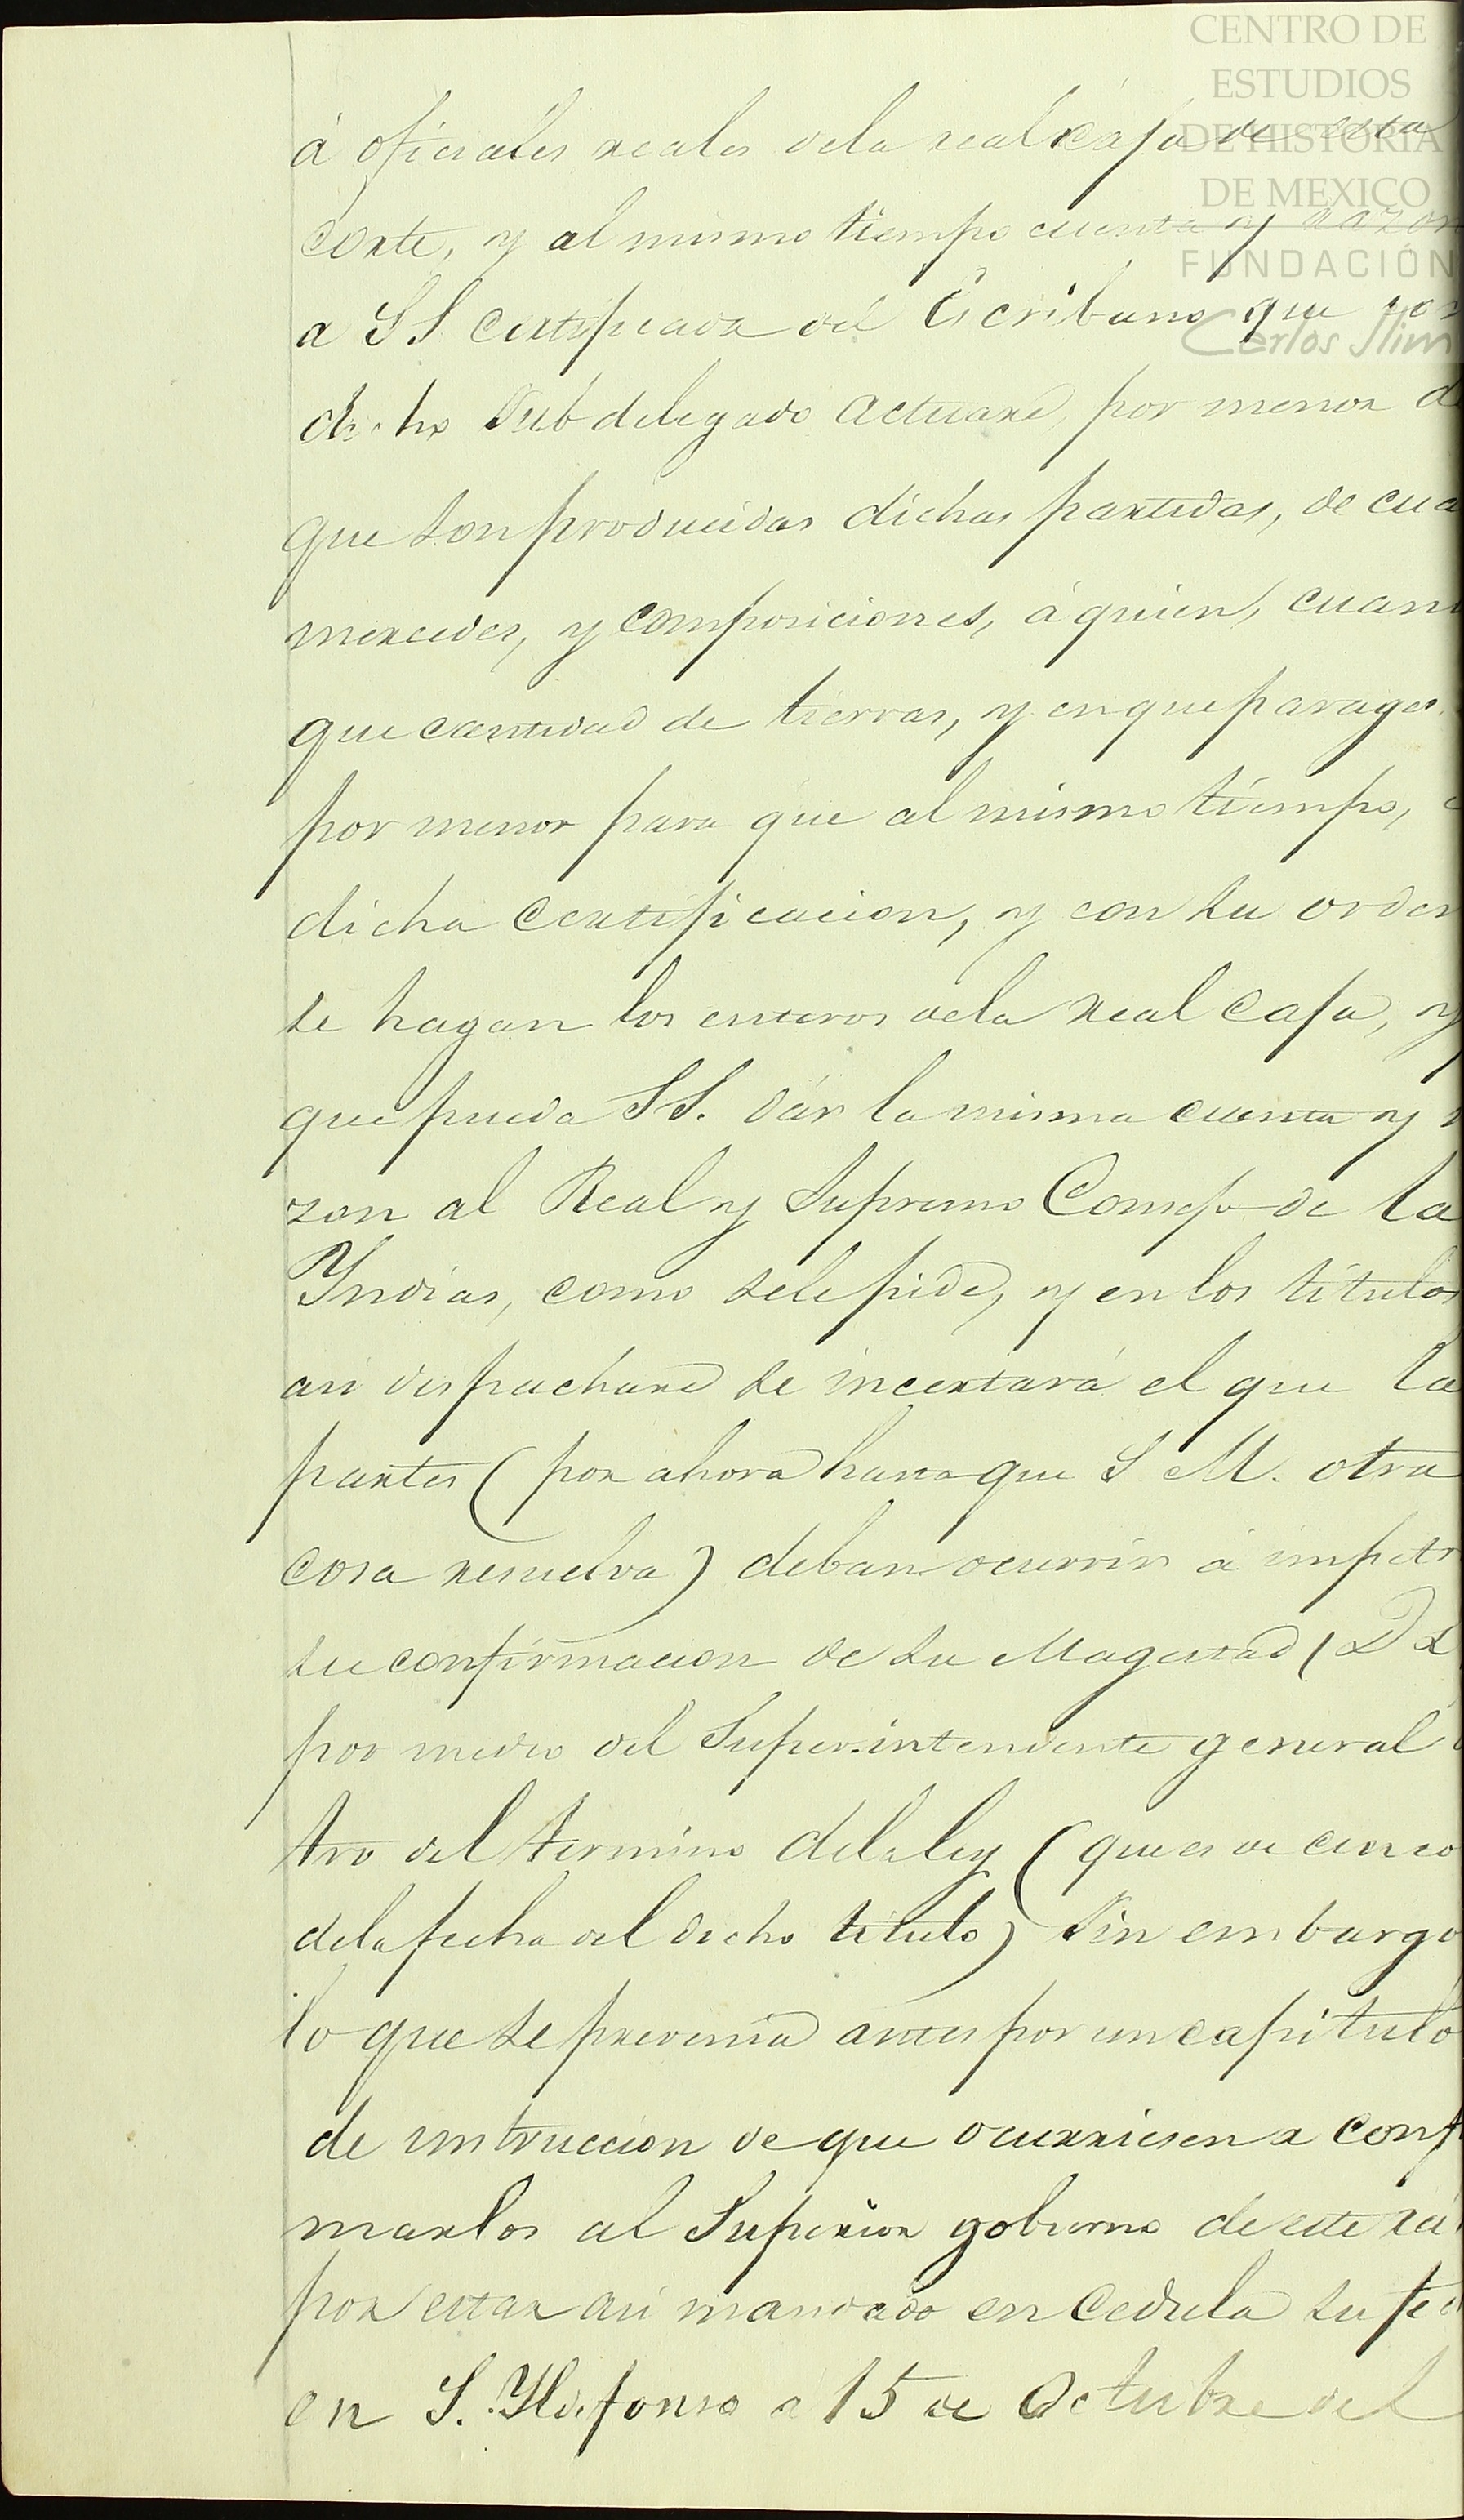 CENTRO DE
ESTUDIOS
DE HISTORIA
DE MEXICO
FUNDACIÓN
Carlos Slim
á oficiales reales dela real caja de esta
corte, y al mismo tiempo cuenta y razon
a SS certificada del Escribano que con
dicho Subdelegado actuare, por menor d
que son producidas dichas partidas, de cua
mercedes, y composiciones, á quien, cuan
que cantidad de tierras, y en que parages
por menor para que al mismo tiempo,
dicha certificacion, y con su orden
se hagan los enteros dela real caja, y
que pueda SS. dár la misma cuenta y
zon al Real y Supremo Consejo de la
Yndias, como sele pide, y en los titulos
asi despachare se incertará el que la
partes ( por ahora hasta que S M. otra
cosa resuelva ) deban ocurrir á impetr
su confirmacion de su Magestad (
por medio del Superintendente general
tro del termino dela ley ( que es de cinco
dela fecha del dicho titulo ) Sin embargo
lo que se prevenia antes por un capitulo
de instruccion de que ocurriesen a conf
marlos al Superior gobierno de este
por estar asi mandado en Cedula su fe
en S. Yldefonso a 15 de Octubre del